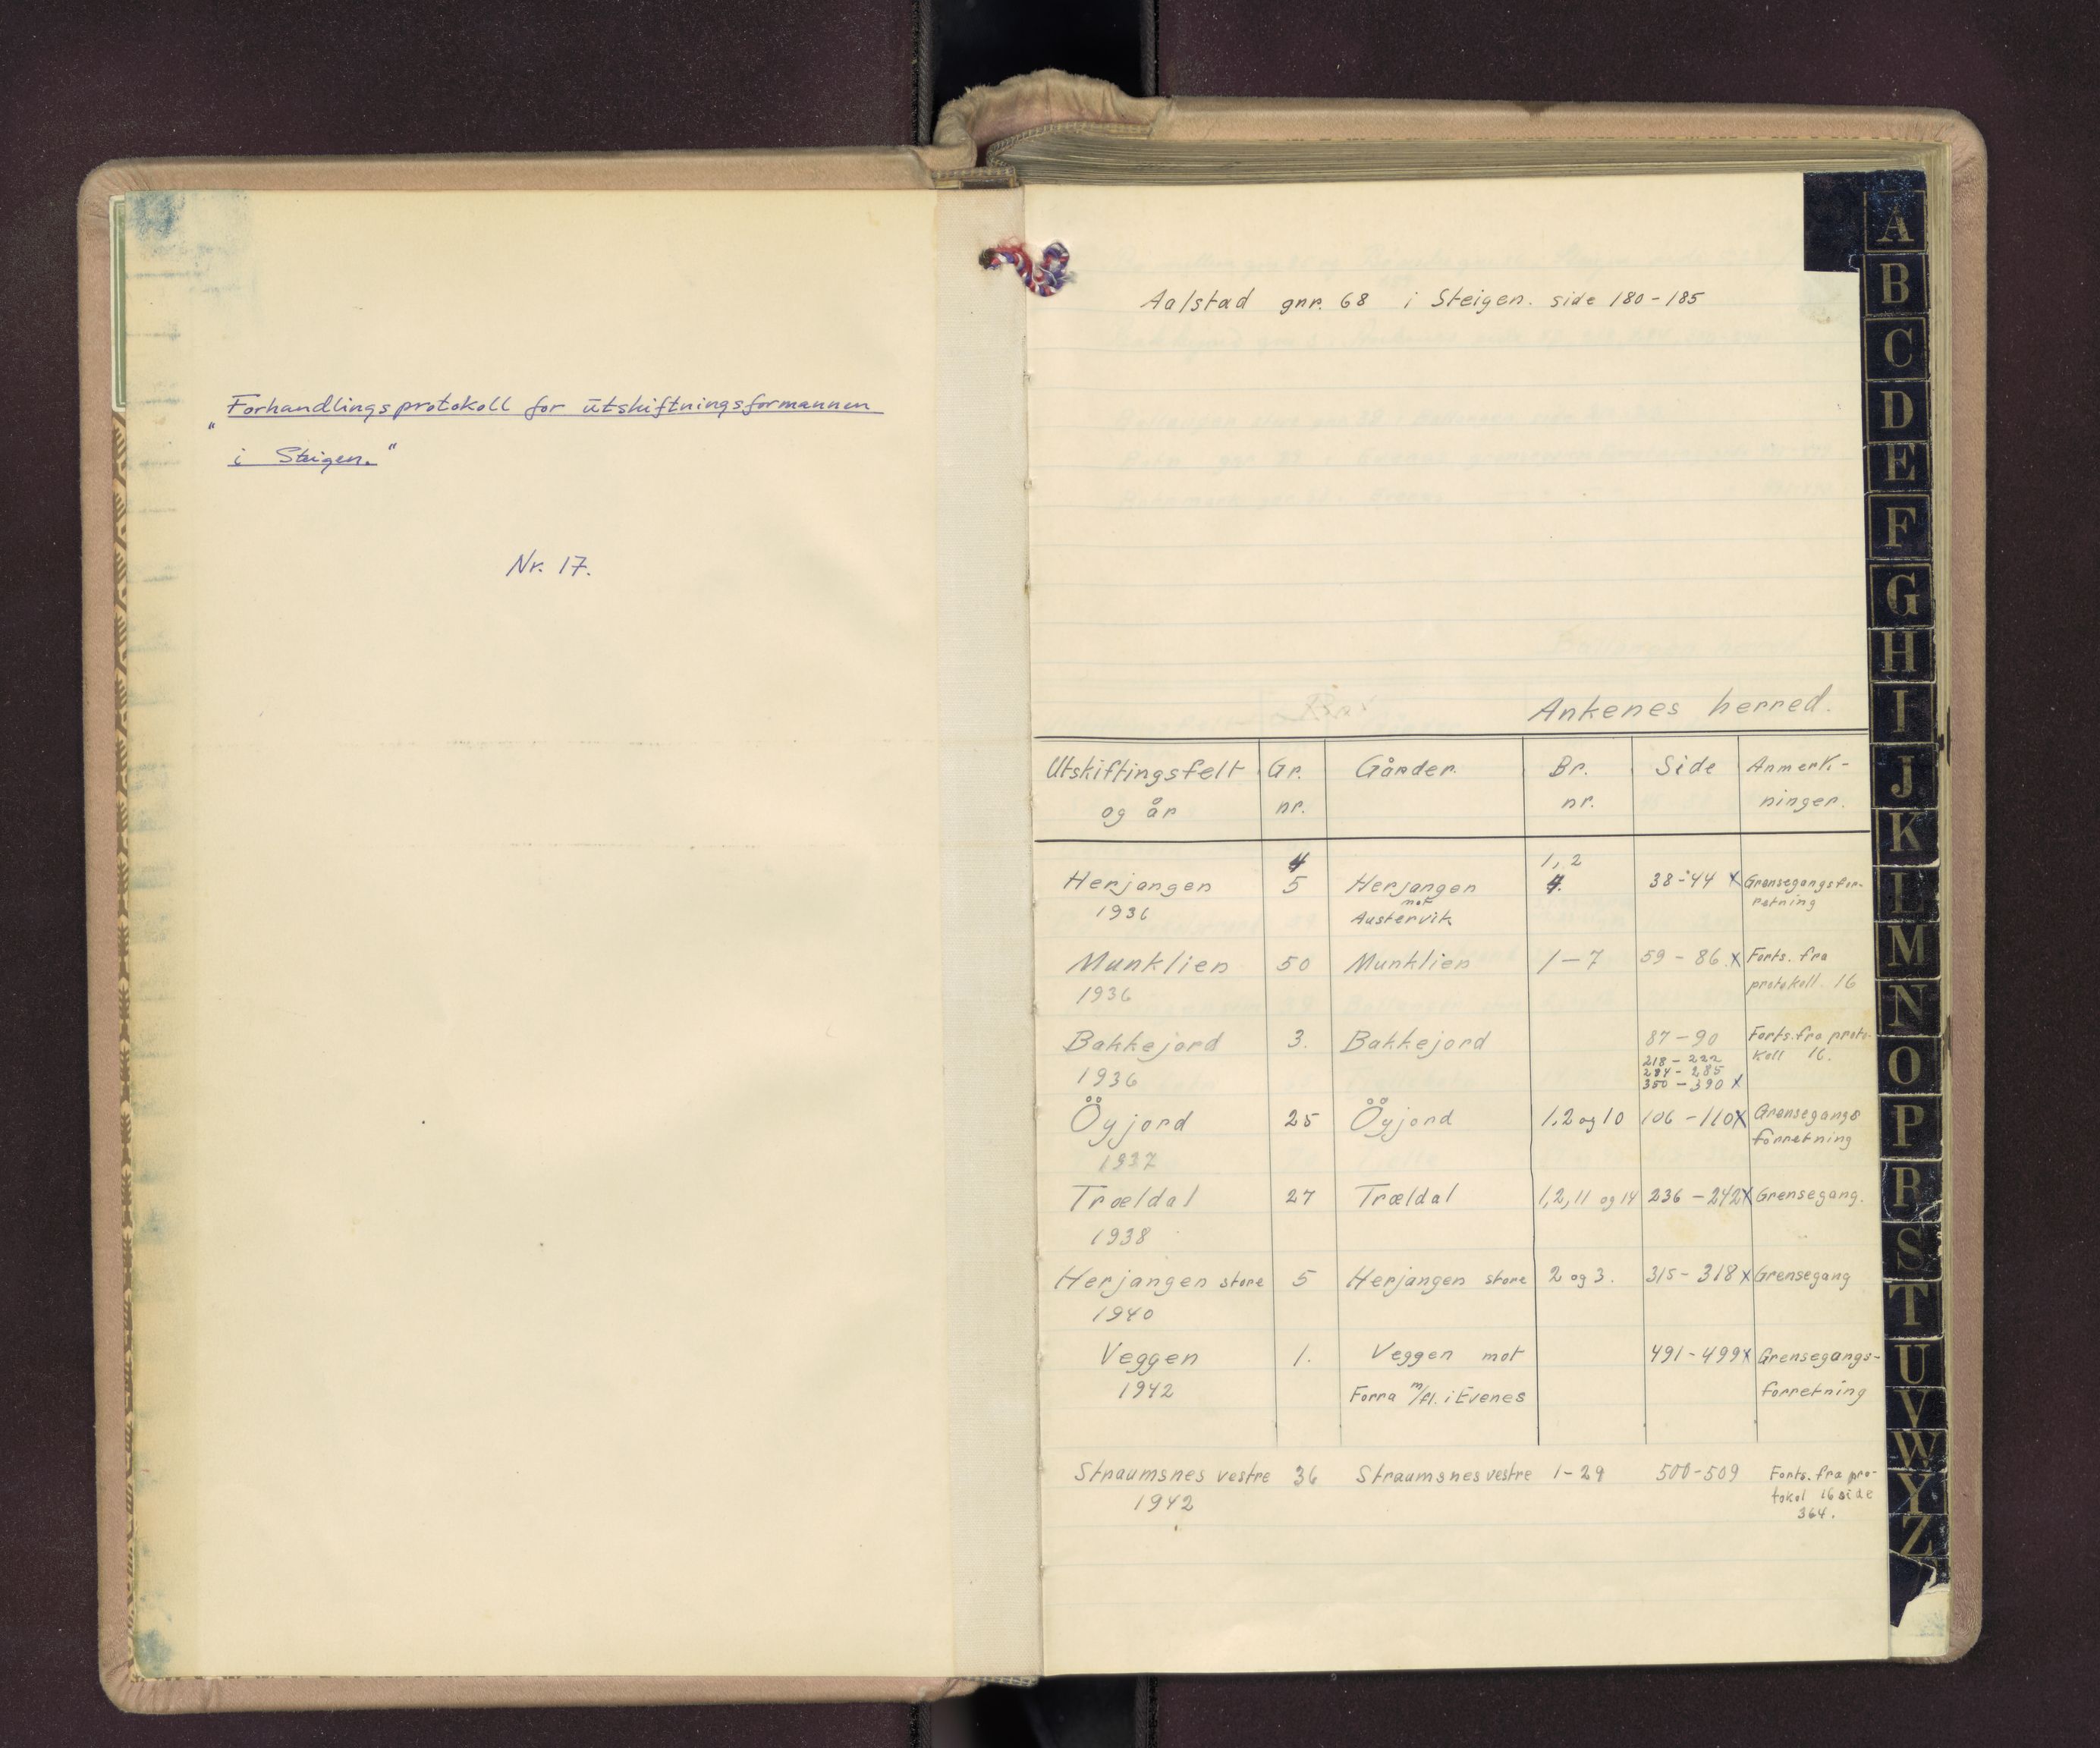 „Forhandlingsprotokoll for utskiftningsformannen
i Steigen."
Nr. 17.
Aalstad gnr. 68 i Steigen. side 180-185
Ankenes herred.
Utskiftingsfelt og år Gr. nr. Gårder. Br. nr. Side Anmerk-ninger.
4 1, 2
Herjangen 5 Herjangen 4. 38-44 x Grensegangsfor-
1936 mot retning
Austervik
Munklien 50 Munklien 1-7 59-86 x Forts. fra
1936 protokoll. 16
Bakkejord 3. Bakkejord 87-90 Forts. fra proto-
218-222 koll 16.
1936 284-285
350-390 x
Öyjord 25 Öyjord 1,2 og 10 106-110 x Grensegangs
1937 forretning
Trældal 27 Trældal 1,2,11 og 14 236-242 x Grensegang.
1938
Herjangen store 5 Herjangen store 2 og 3. 315-318 x Grensegang
1940
Veggen 1. Veggen mot 491-499 x Grensegangs-
1942 Forra m/fl. i Evenes forretning
Straumsnes vestre 36 Straumsnes vestre 1-29 500-509 Forts. fra pro-
1942 tokol 16 side
364.
A
B
C
D
E
F
G
H
I
J
K
L
M
N
O
P
R
S
T
U
V
W
Y
Z